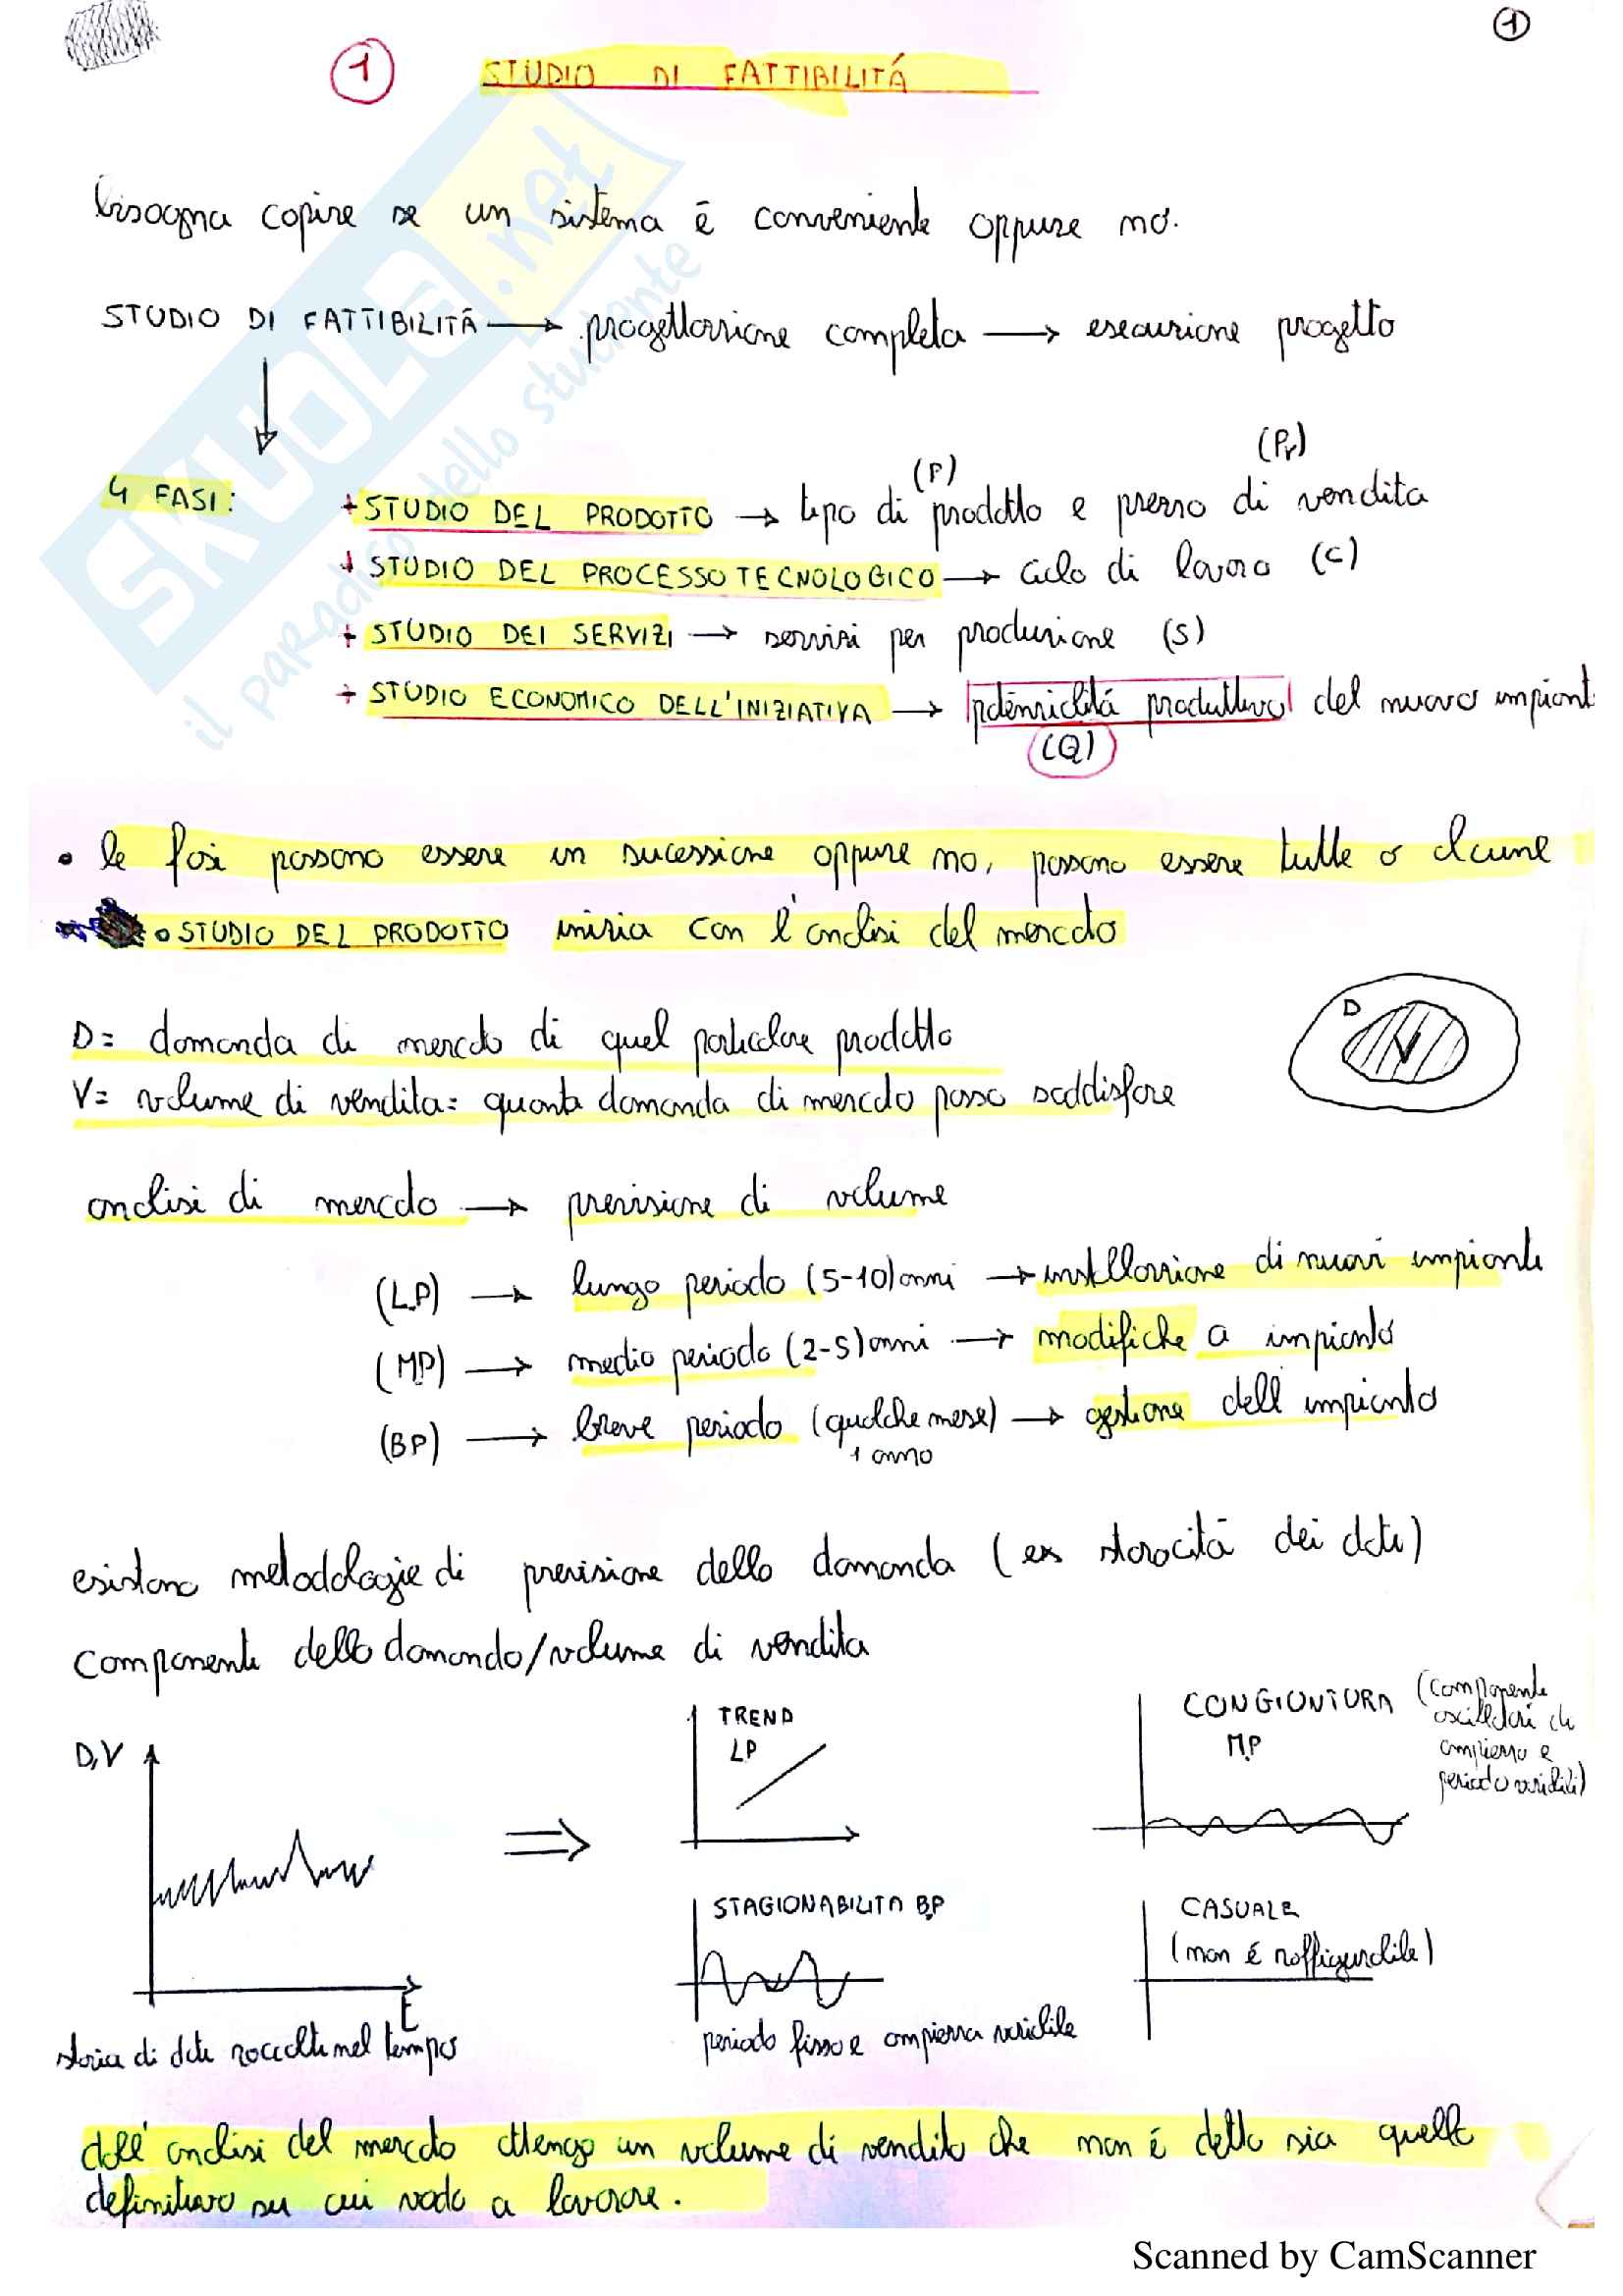 1
1 STUDIO DI FATTIBILITÁ
bisogna capire se un sistema è conveniente oppure no.
STUDIO DI FATTIBILITÀ → progettazione completa → esecuzione progetto
(P) (Pr)
4 FASI: + STUDIO DEL PRODOTTO → tipo di prodotto e prezzo di vendita
+ STUDIO DEL PROCESSO TECNOLOGICO → ciclo di lavoro (C)
+ STUDIO DEI SERVIZI → servizi per produzione (S)
+ STUDIO ECONOMICO DELL'INIZIATIVA → potenzialità produttiva del nuovo impiant
(Q)
• le fasi possono essere in sucessione oppure no, possono essere tutte o alcune
• STUDIO DEL PRODOTTO inizia con l'analisi del mercato
D= domanda di mercato di quel particolare prodotto
V= volume di vendita= quanta domanda di mercato posso soddisfare
D
V
analisi di mercato → previsione di volume
(LP) → lungo periodo (5-10) anni → installazione di nuovi impianti
(MP) → medio periodo (2-5) anni → modifiche a impianto
(BP) → breve periodo (qualche mese) → gestione dell'impianto
1 anno
esistono metodologie di previsione della domanda (ex storicità dei dati)
componenti della domanda/volume di vendita
D,V
t
storia di dati raccolti nel tempo
⇒
TREND
LP
CONGIONTURA MP
(componente oscillatori di ampiezza e periodo variabili)
STAGIONABILITA BP
periodo fisso e ampiezza variabile
CASUALE
(non é raffigurabile)
dall'analisi del mercato ottengo un volume di vendita che non é detto sia quello
definitivo su cui vado a lavorare.
SKUOLA.net
il paradiso dello studente
Scanned by CamScanner